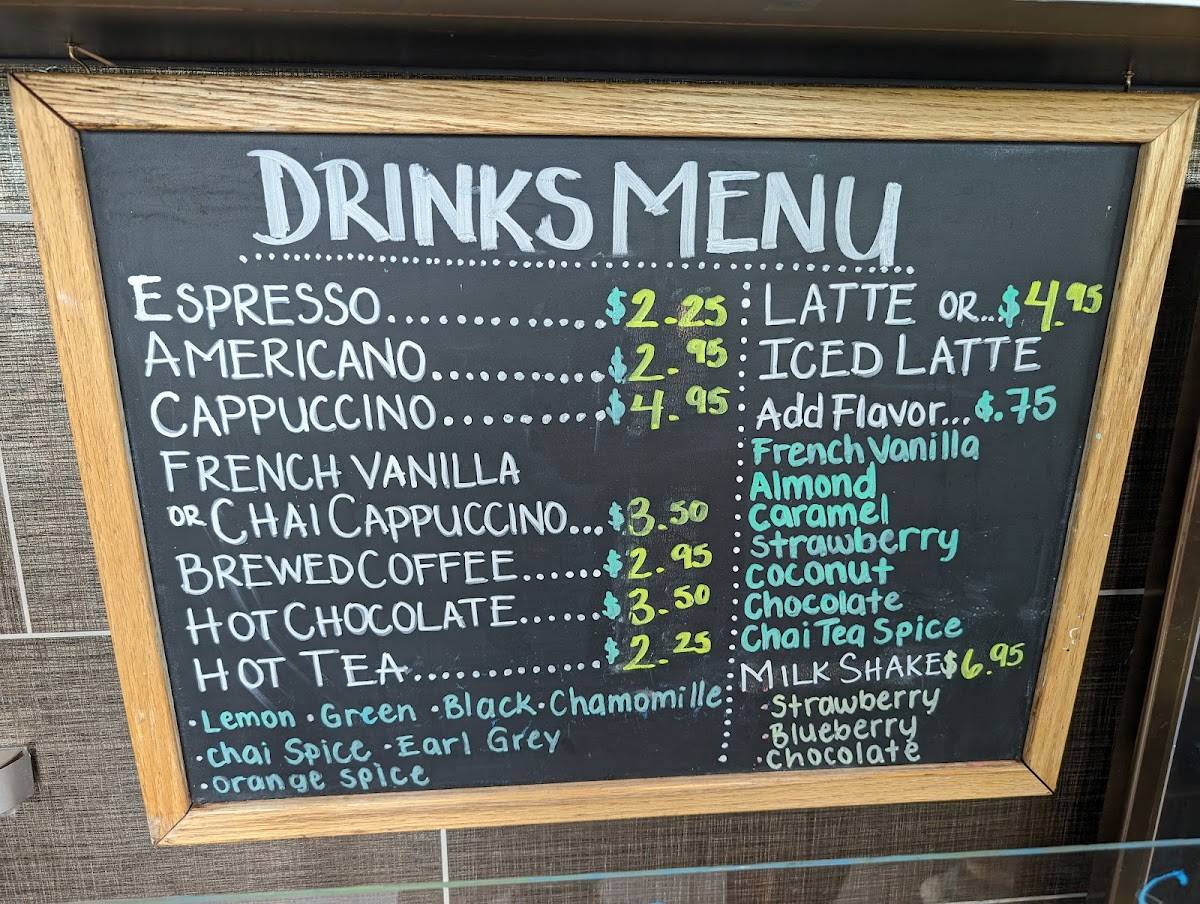 DRINKS MENU
ESPRESSO....................$2.25
AMERICANO..............$2.95
CAPPUCCINO.............$4.95
FRENCH VANILLA
OR CHAI CAPPUCCINO...$3.50
BREWED COFFEE......$2.95
HOT CHOCOLATE......$3.50
HOT TEA...............$2.25
·Lemon ·Green ·Black·Chamomille
·chai Spice ·Earl Grey
·orange spice
LATTE OR...$4.95
ICED LATTE
Add Flavor...$.75
French Vanilla
Almond
Caramel
Strawberry
Coconut
Chocolate
Chai Tea Spice
MILK SHAKE$6.95
·Strawberry
·Blueberry
·chocolate